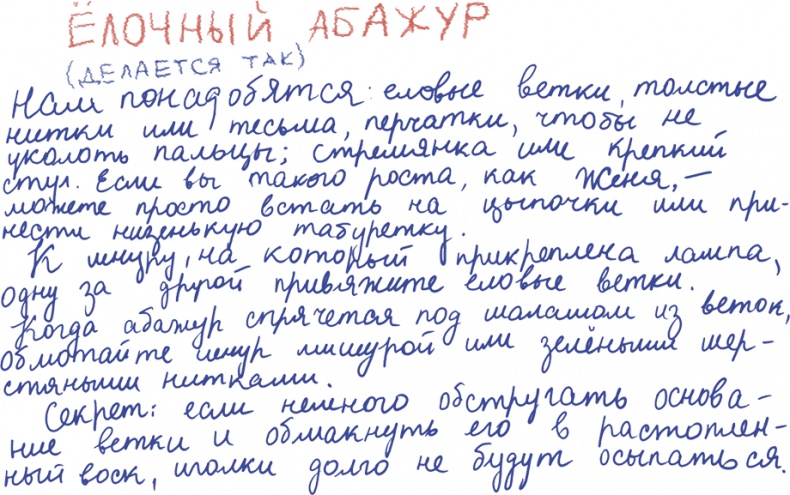 ЁЛОЧНЫЙ АБАЖУР
(ДЕЛАЕТСЯ ТАК)
Нам понадобятся: еловые ветки, толстые
нитки или тесьма, перчатки, чтобы не
уколоть пальцы; стремянка или крепкий
стул. Если вы такого роста, как Женя, –
можете просто встать на цыпочки или при-
нести низенькую табуретку.
К шнуру, на который прикреплена лампа,
одну за другой привяжите еловые ветки.
Когда абажур спрячется под шалашом из веток,
обмотайте шнур мишурой или зелёными шер-
стяными нитками.
Секрет: если немного обстругать основа-
ние ветки и обмакнуть его в растоплен-
ный воск, иголки долго не будут осыпаться.